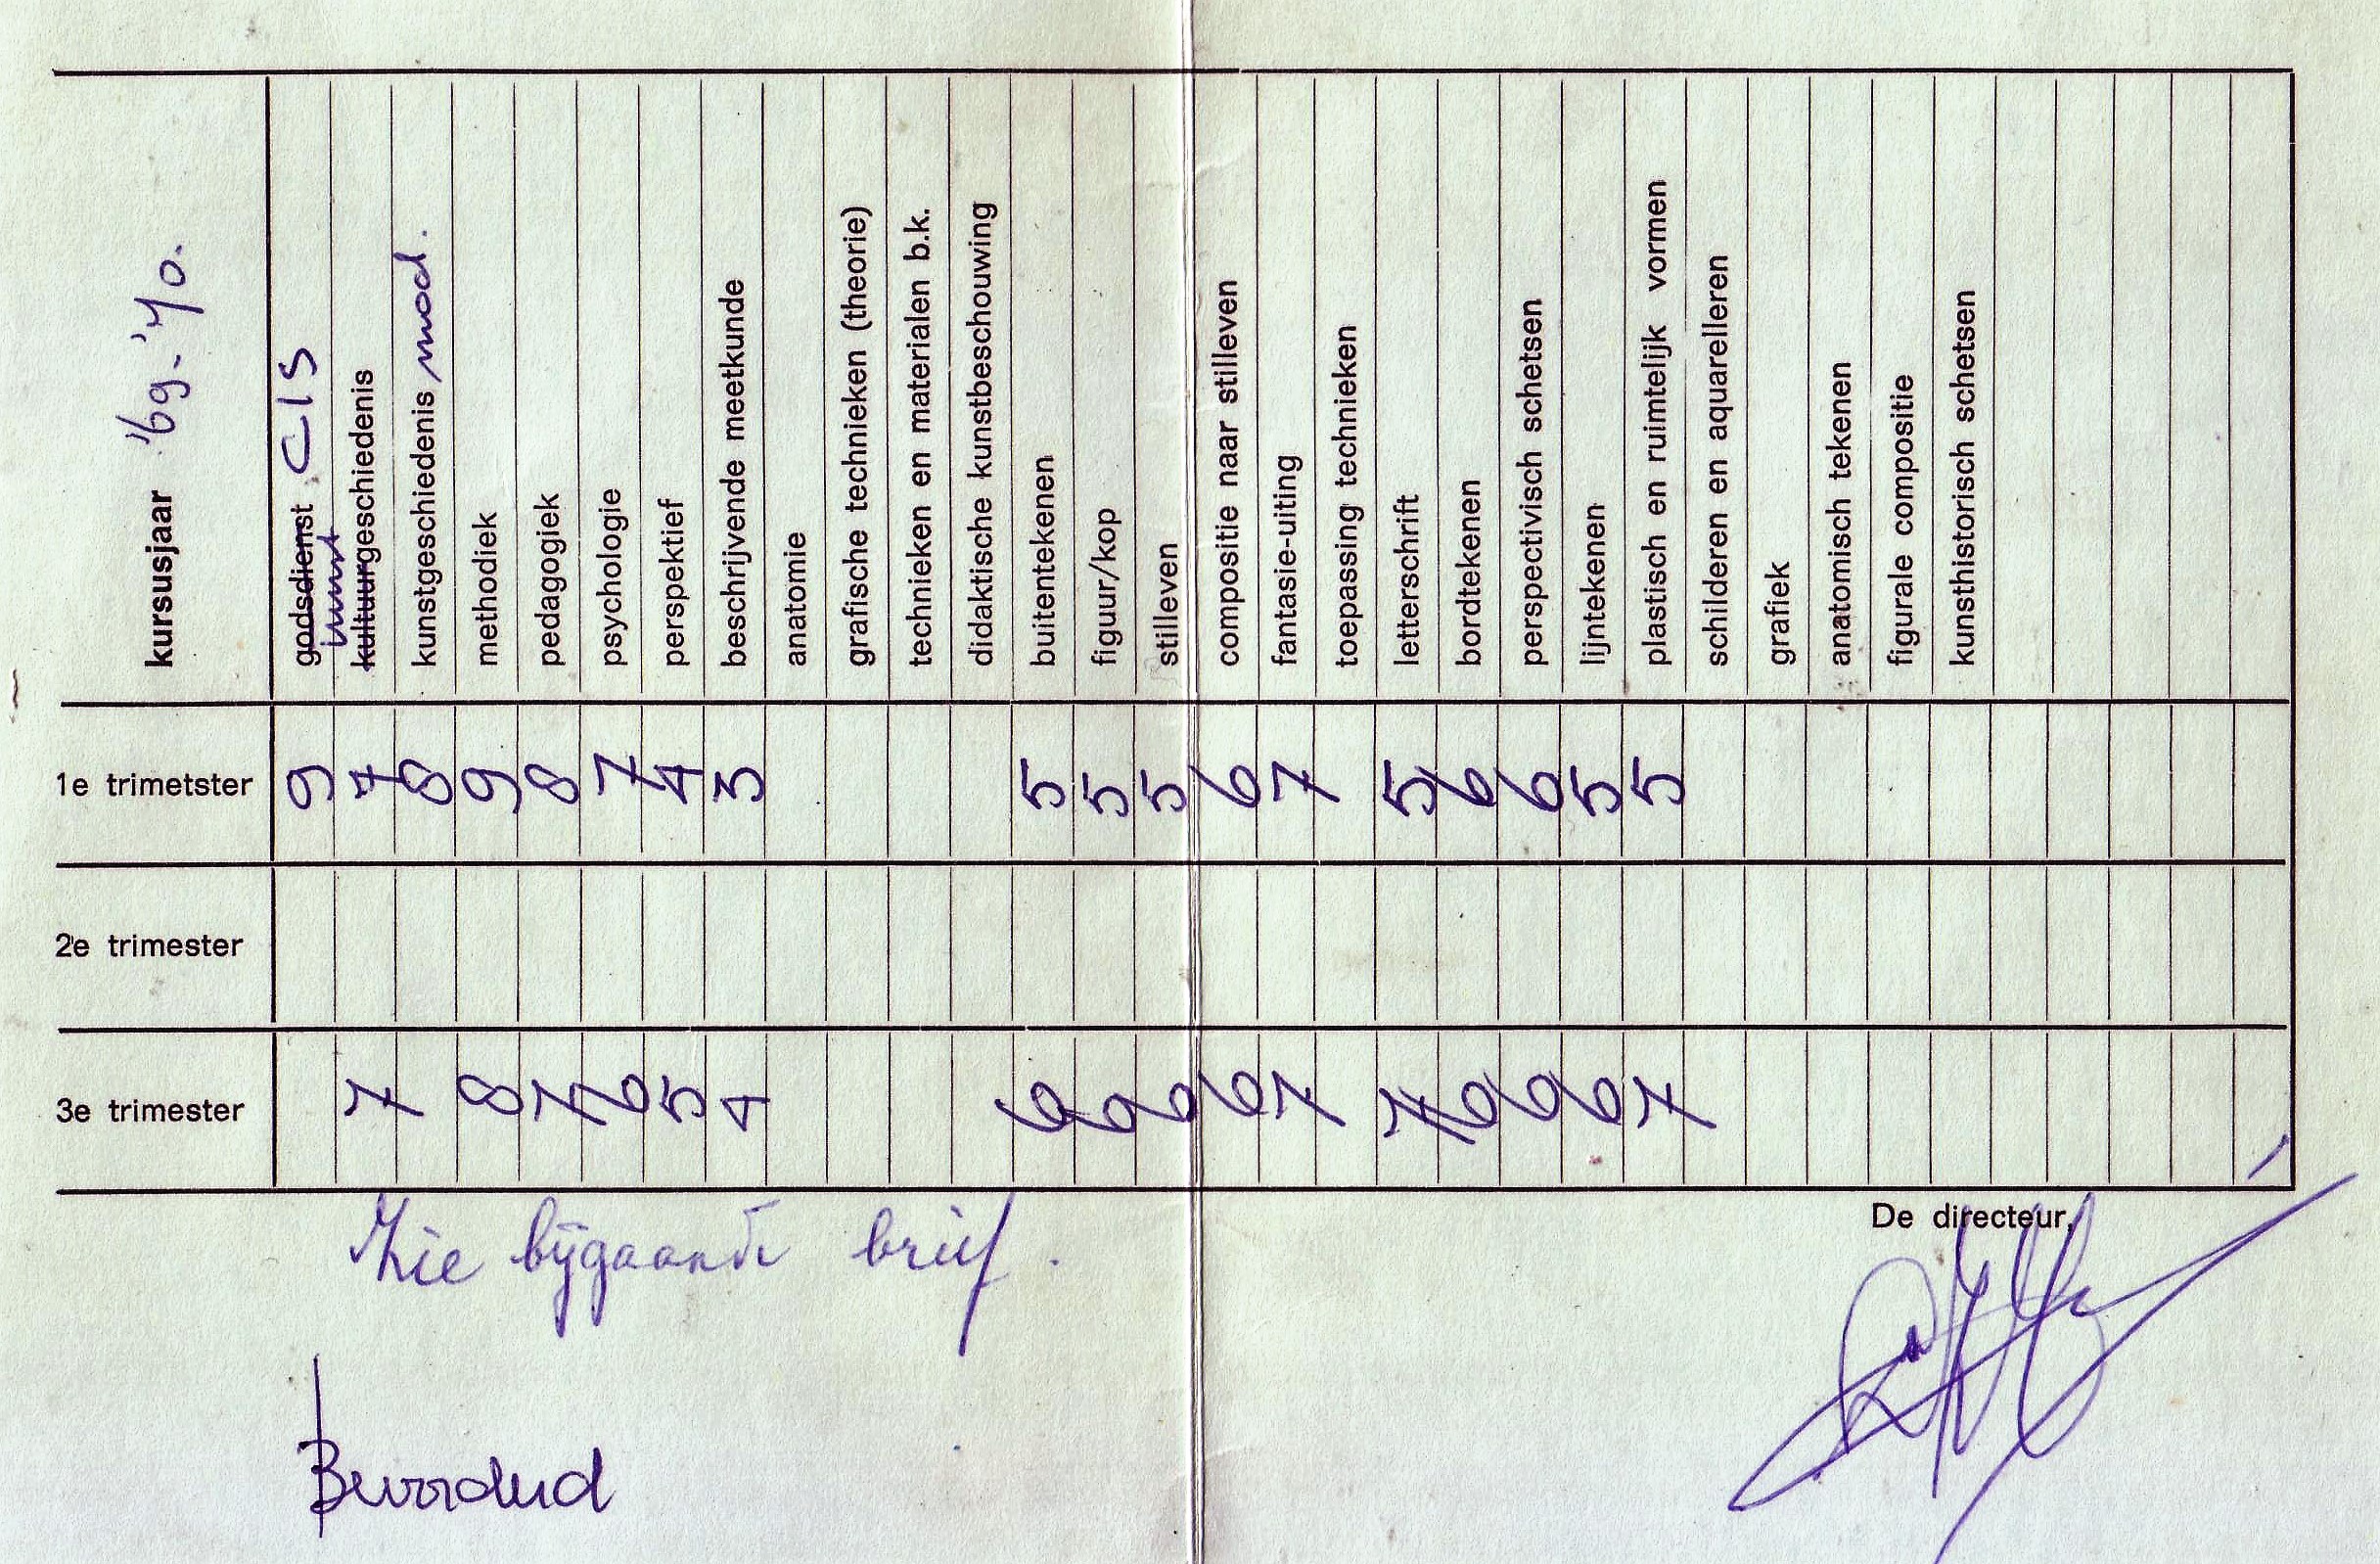 kursusjaar '69-'70.
godsdienst CIS
kunst
kultuurgeschiedenis
kunstgeschiedenis mod.
methodiek
pedagogiek
psychologie
perspektief
beschrijvende meetkunde
anatomie
grafische technieken (theorie)
technieken en materialen b.k.
didaktische kunstbeschouwing
buitentekenen
figuur/kop
stilleven
compositie naar stilleven
fantasie-uiting
toepassing technieken
letterschrift
bordtekenen
perspectivisch schetsen
lijntekenen
plastisch en ruimtelijk vormen
schilderen en aquarelleren
grafiek
anatomisch tekenen
figurale compositie
kunsthistorisch schetsen
1e trimetster 9 4 8 9 8 7 4 3 5 5 5 6 7 5 6 6 5 5
2e trimester
3e trimester 7 8 7 6 5 4 6 6 6 6 7 7 6 6 6 7
Zie bijgaande brief.
De directeur,
Bevorderd